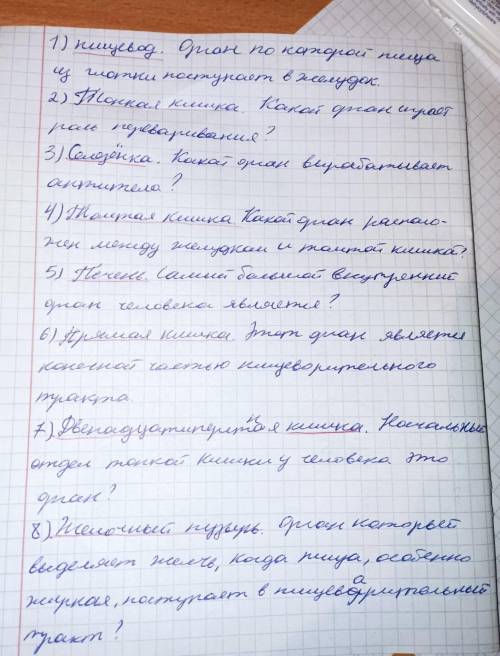 1) пищевод. Орган по которой пища
из глотки поступает в желудок.
2) Тонкая кишка. Какой орган играет
роль переваривания?
3) Селезёнка. Какой орган вырабатывает
антитела?
4) Толстая кишка. Какой орган располо-
жен между желудком и толстой кишкой?
5) Печень. Самый большой внутренний
орган человека является?
6) Прямая кишка. Этот орган является
конечной частью пищеворительного
тракта.
7) Двенадцатиперстная кишка. Начальный
отдел тонкой кишки у человека это
орган?
8) Желочный пузырь. Орган который
выделяет желчь, когда пища, особенно
жирная, поступает в пищеварительный
тракт?